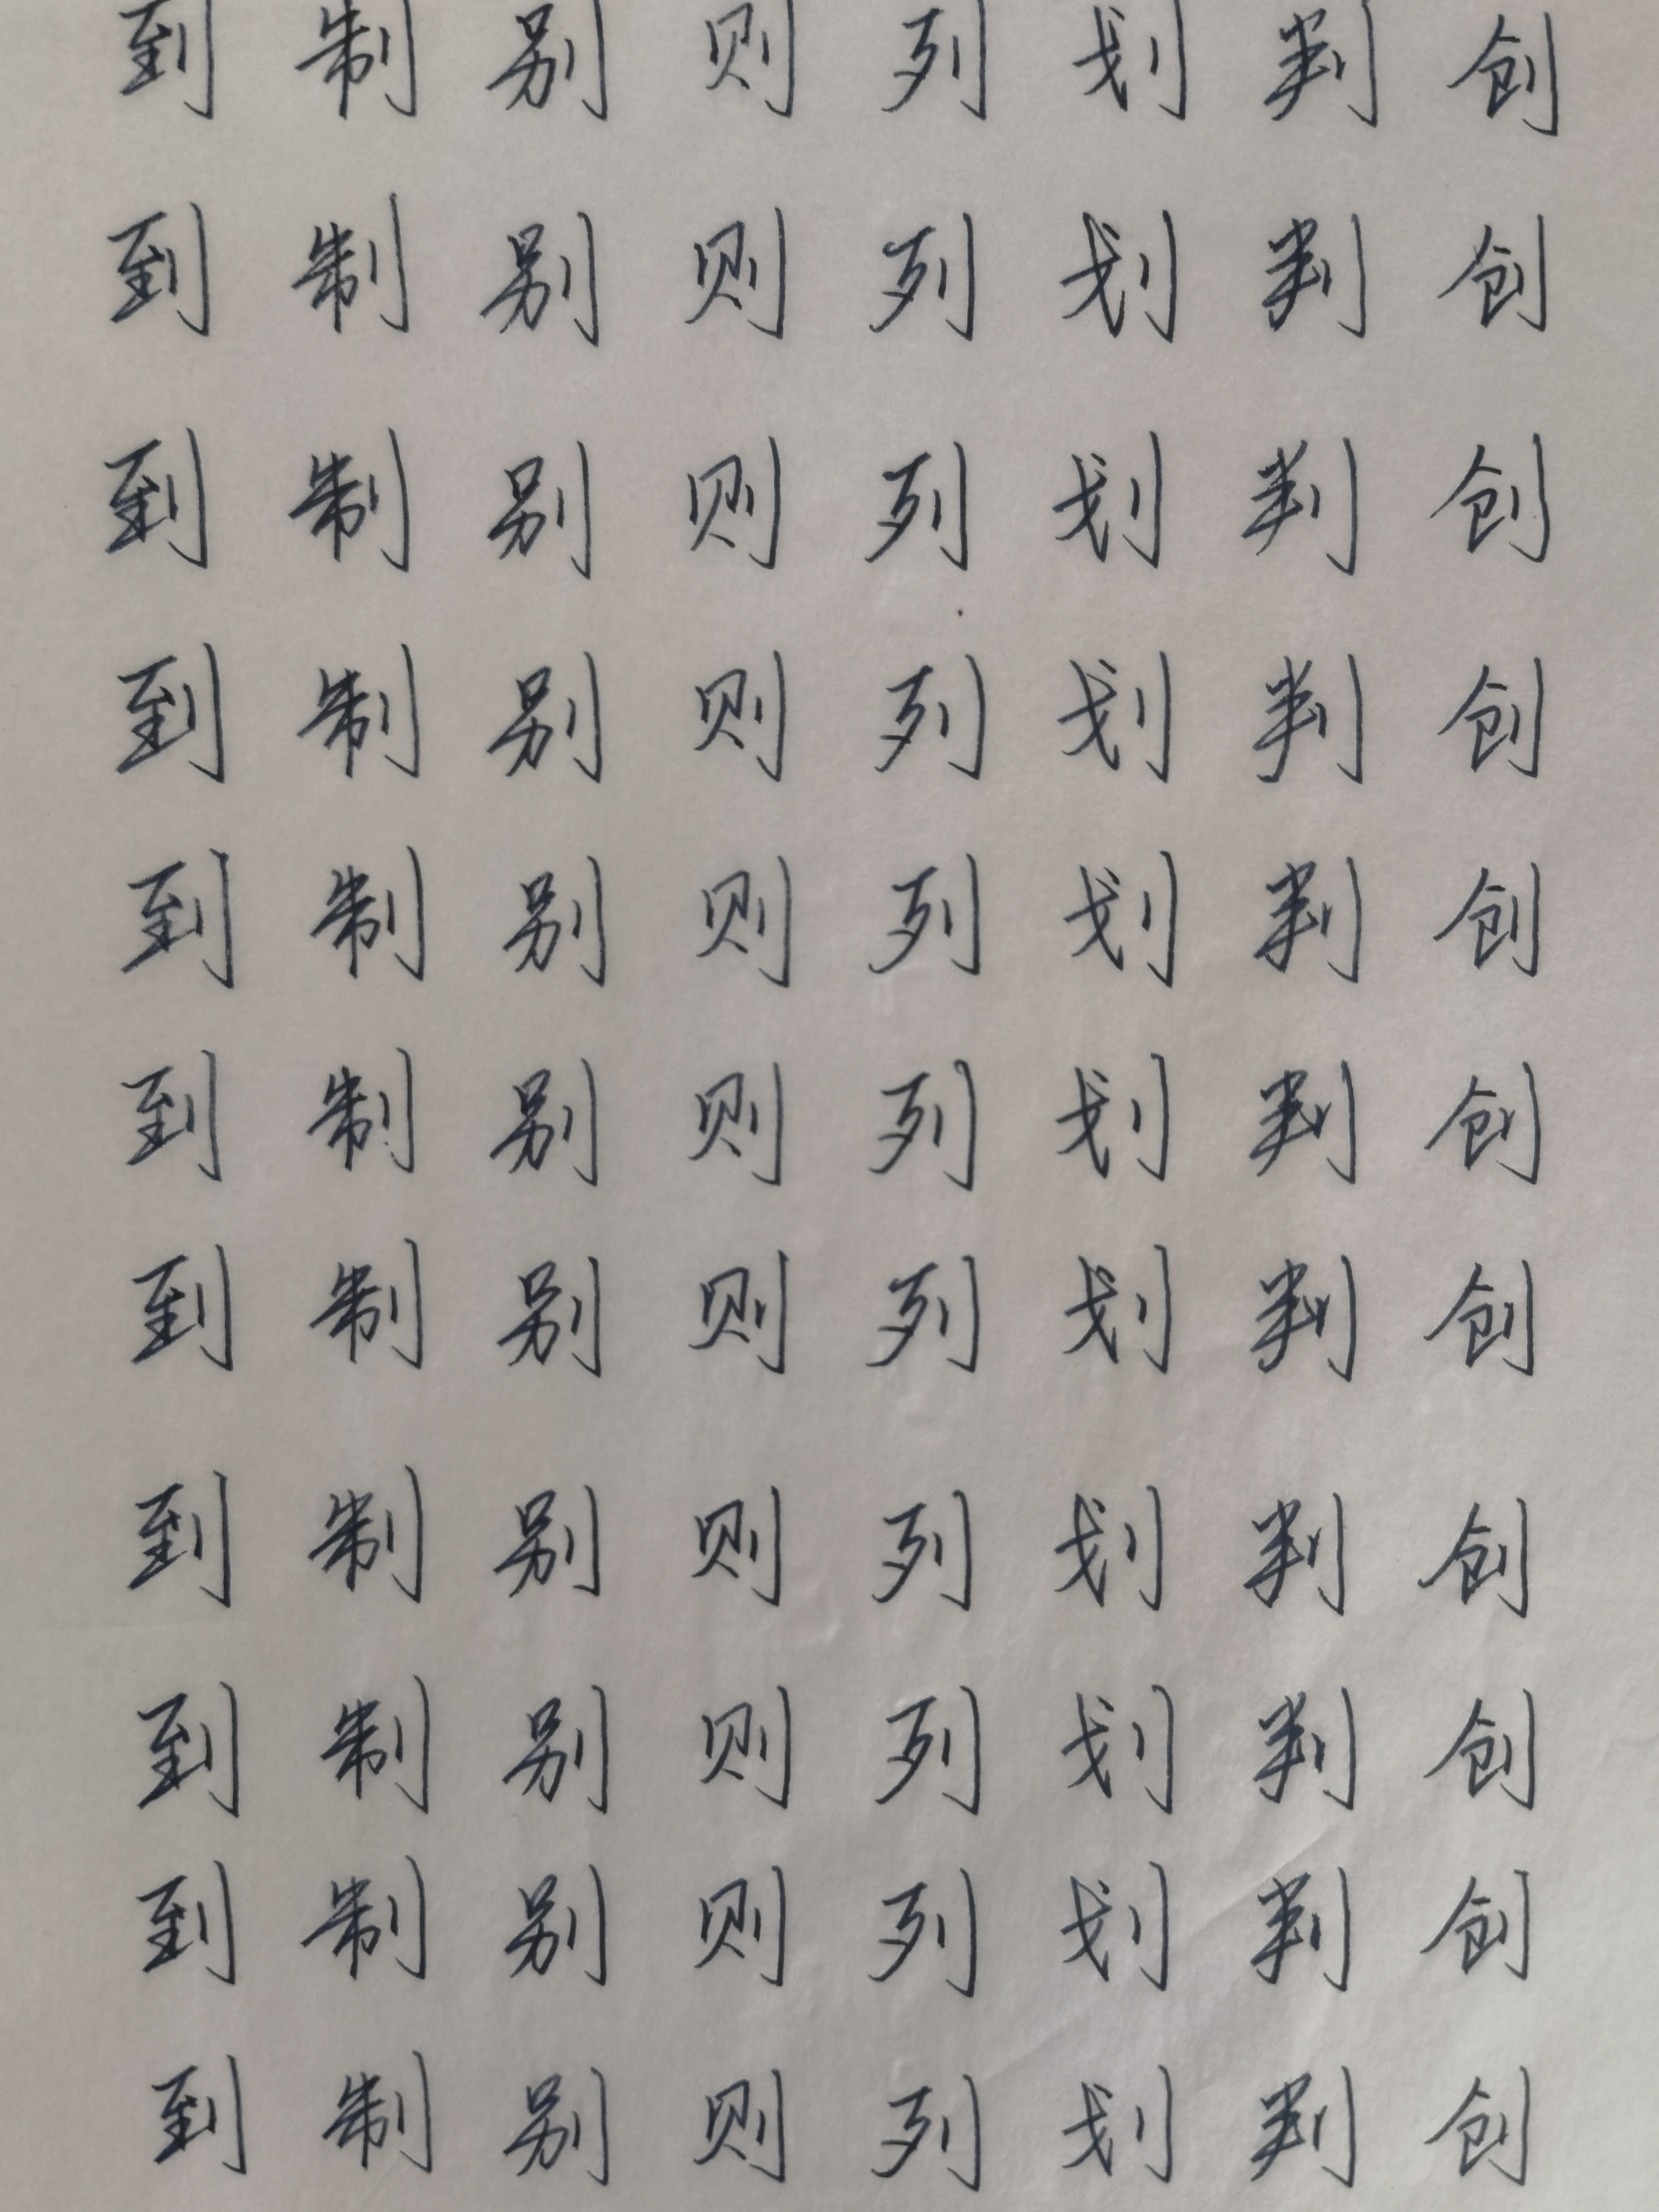 到 制 别 则 列 划 判 创
到 制 别 则 列 划 判 创
到 制 别 则 列 划 判 创
到 制 别 则 列 划 判 创
到 制 别 则 列 划 判 创
到 制 别 则 列 划 判 创
到 制 别 则 列 划 判 创
到 制 别 则 列 划 判 创
到 制 别 则 列 划 判 创
到 制 别 则 列 划 判 创
到 制 别 则 列 划 判 创